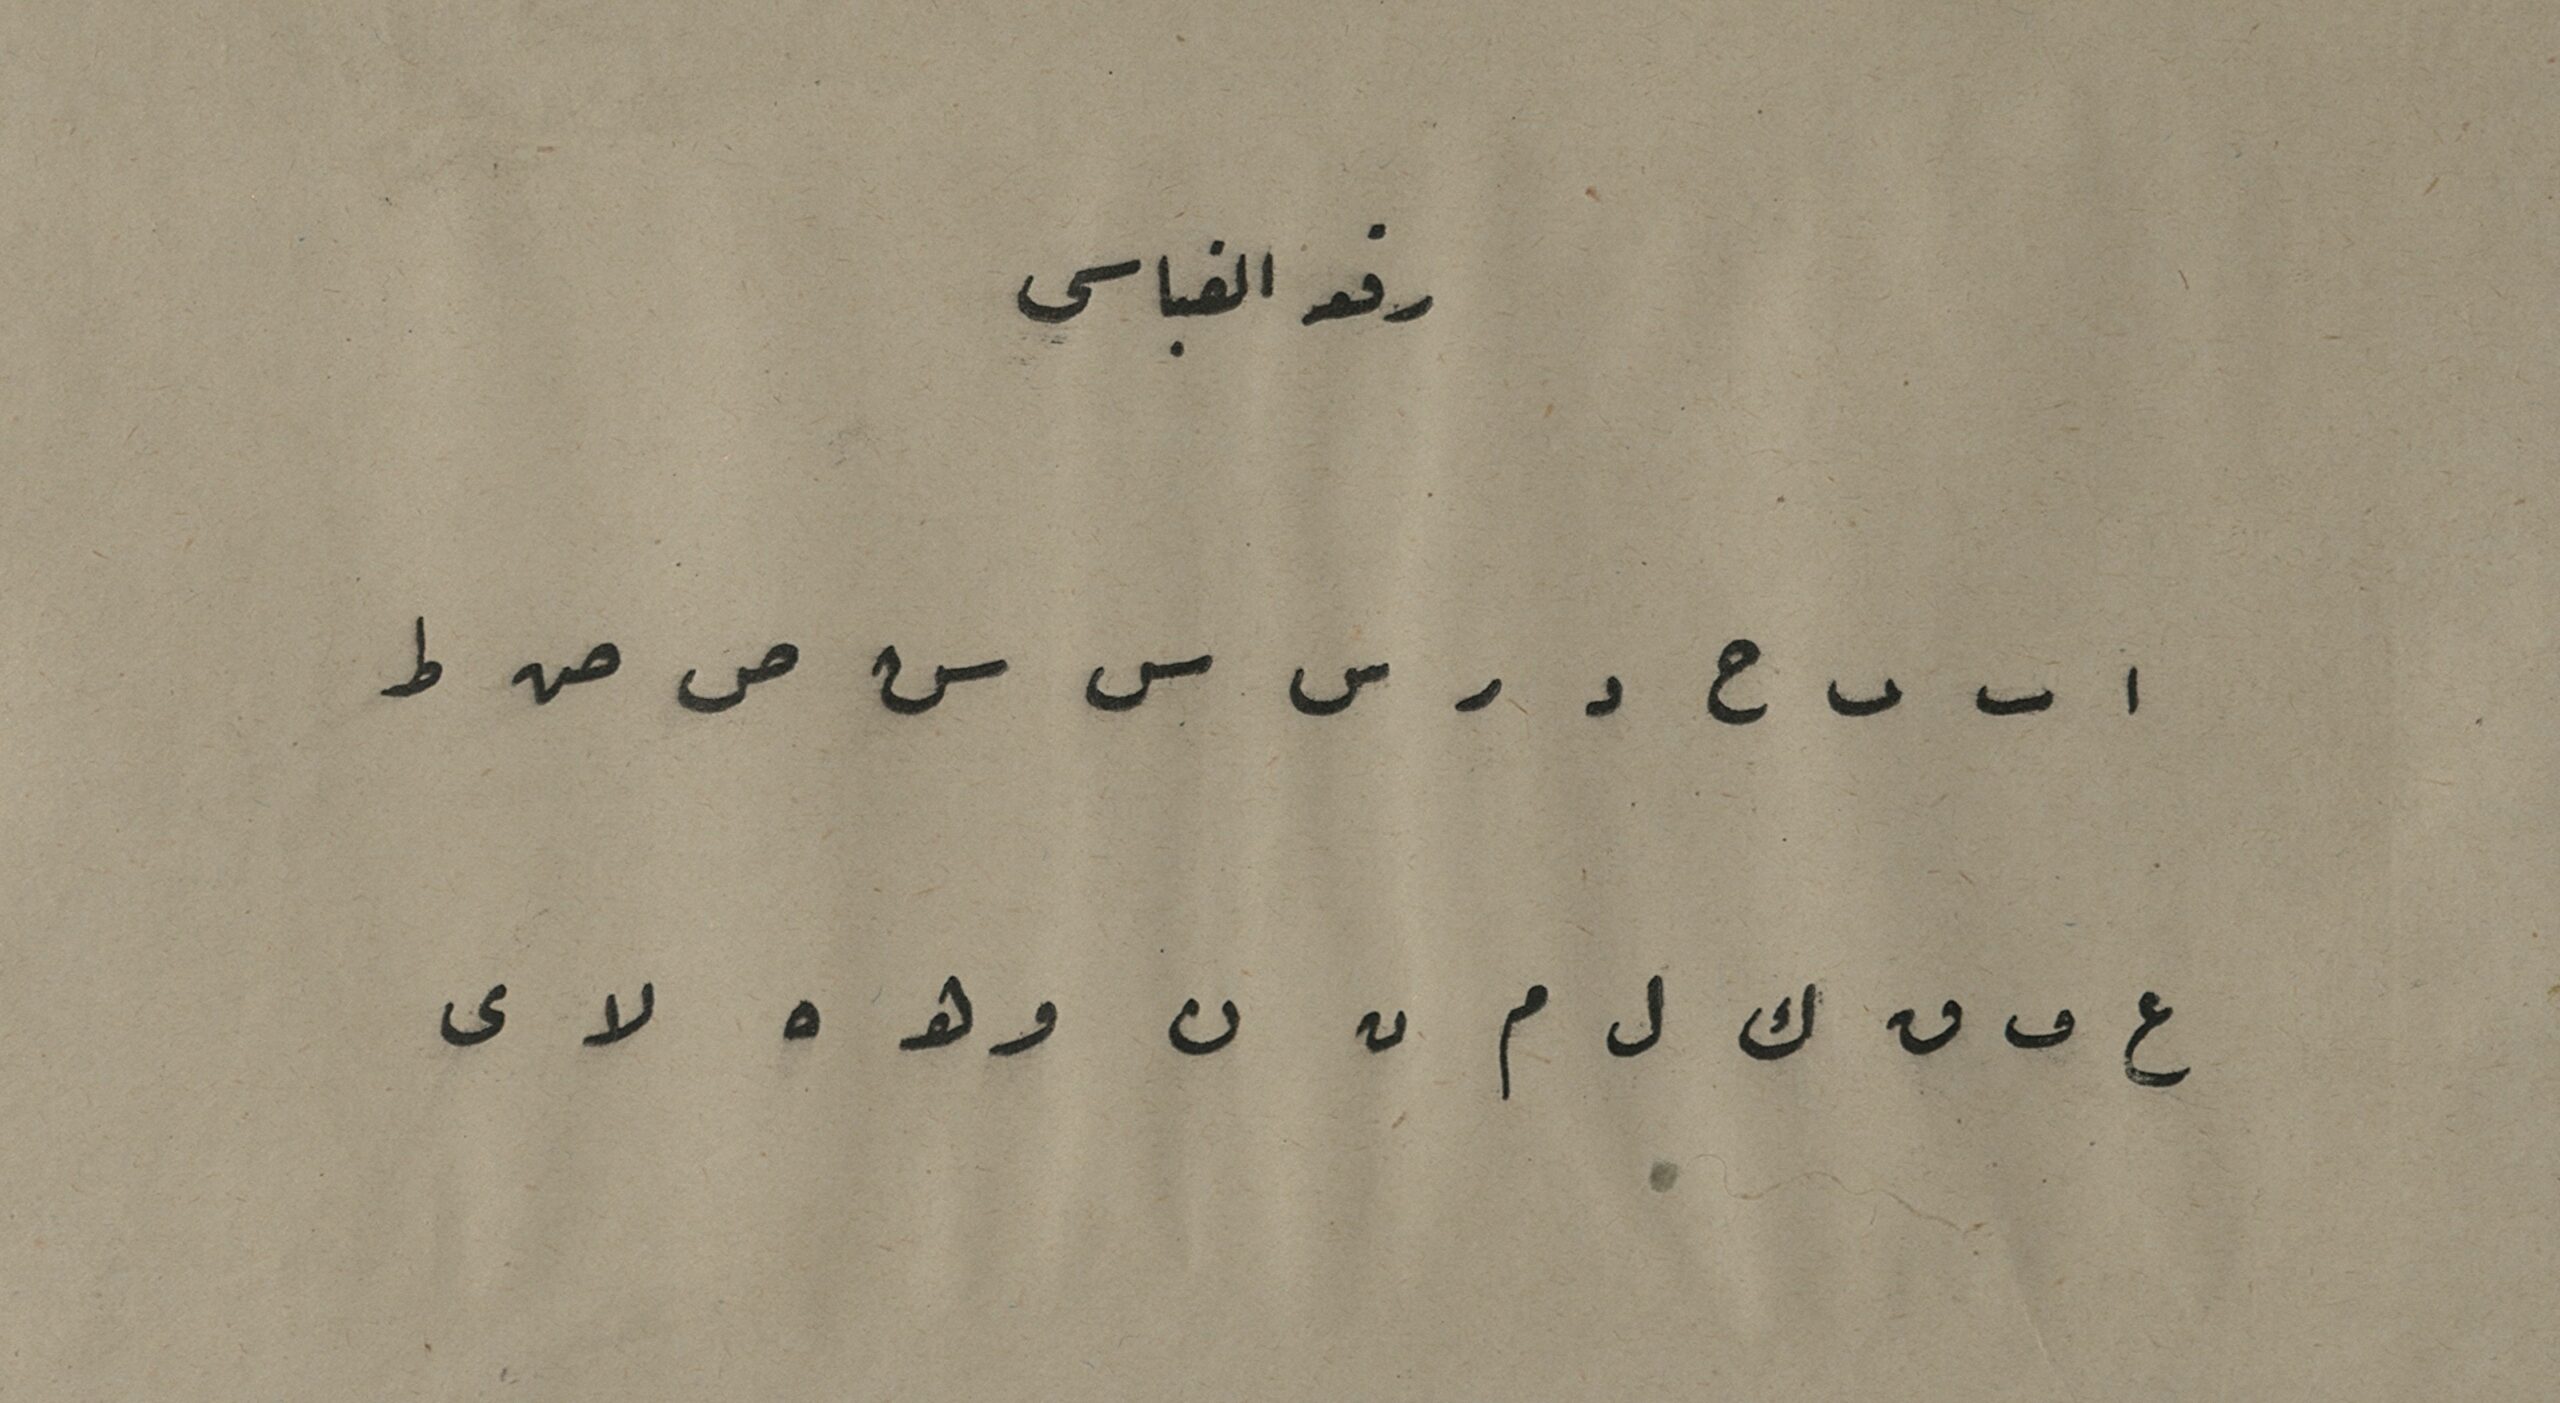 رقعه الفباسى
ا ب ب ح د ر س س س ص ص ط
ع ف ق ك ل م ن ن و ه ه لا ى